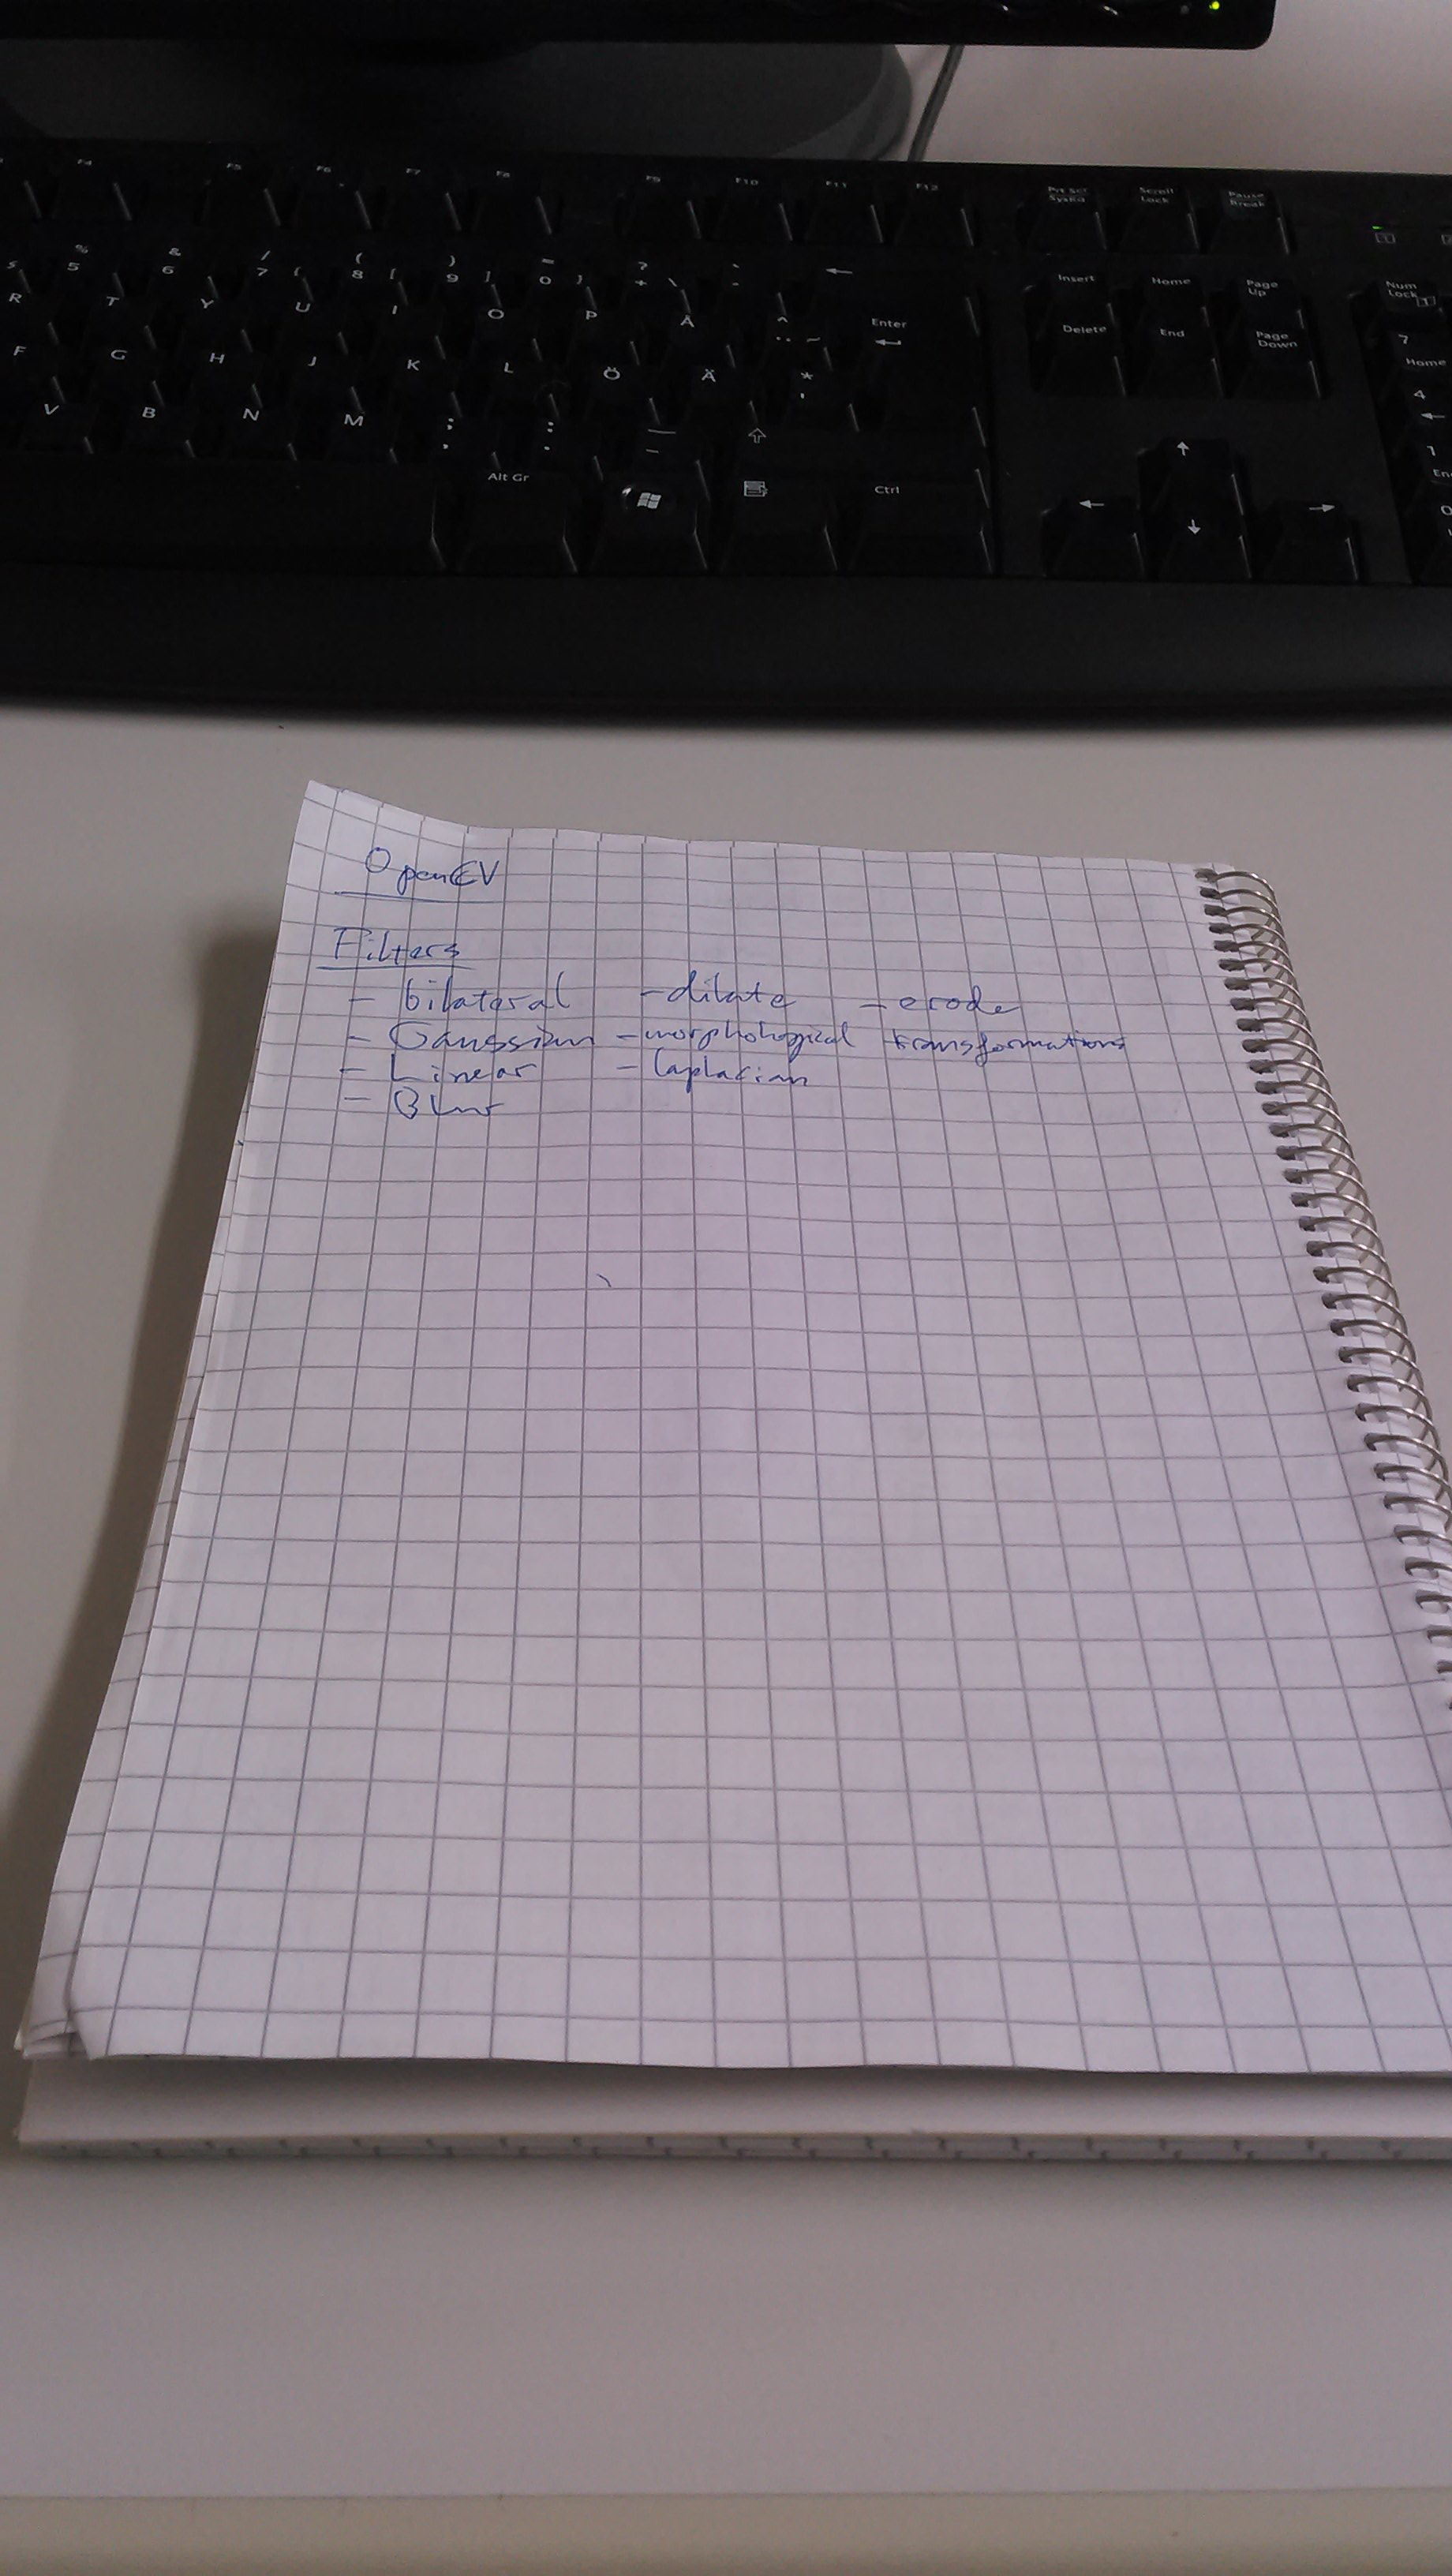 F4 F5 F6 F7 F8 F9 F10 F11 F12 Prt Scr SysRq Scroll Lock Pause Break
% 5 & 6 / 7 { ( 8 [ ) 9 ] = 0 } ? + \ ` ´ ← Insert Home Page Up Num Lock
R T Y U I O P Å ^ ¨ ~ Enter Delete End Page Down 7 Home
F G H J K L Ö Ä * ' 4 ←
V B N M ; , : . _ - ⇧ ↑ 1 En
Alt Gr Ctrl ← ↓ → 0
OpenCV
Filters
- bilateral - dilate - erode
- Gaussian - morphological transformations
- Linear - Laplacian
- Blur